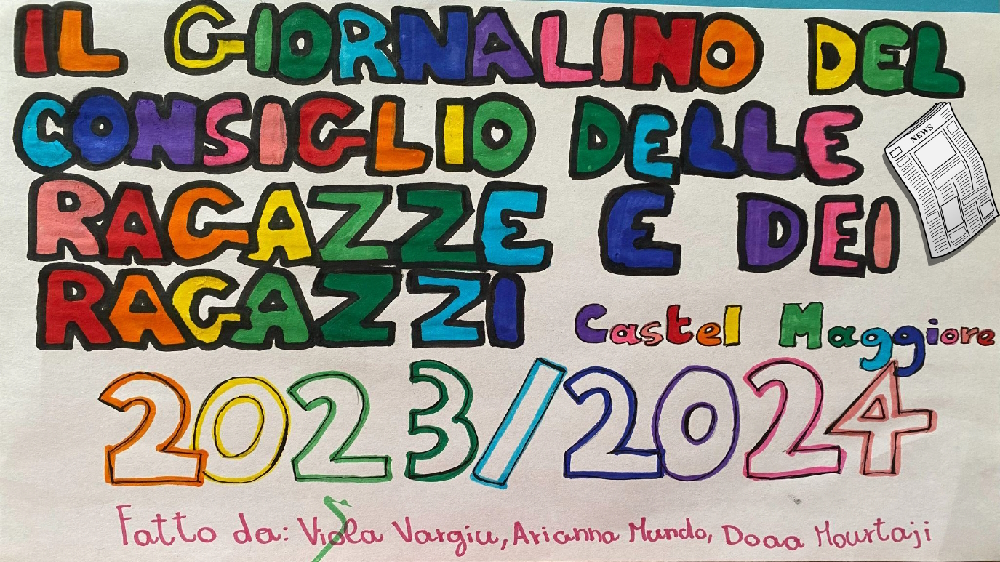 IL GIORNALINO DEL
CONSIGLIO DELLE
RAGAZZE E DEI
RAGAZZI
Castel Maggiore
2023/2024
Fatto da: Viola Vargiu, Arianna Mundo, Doaa Mourtaji
NEWS